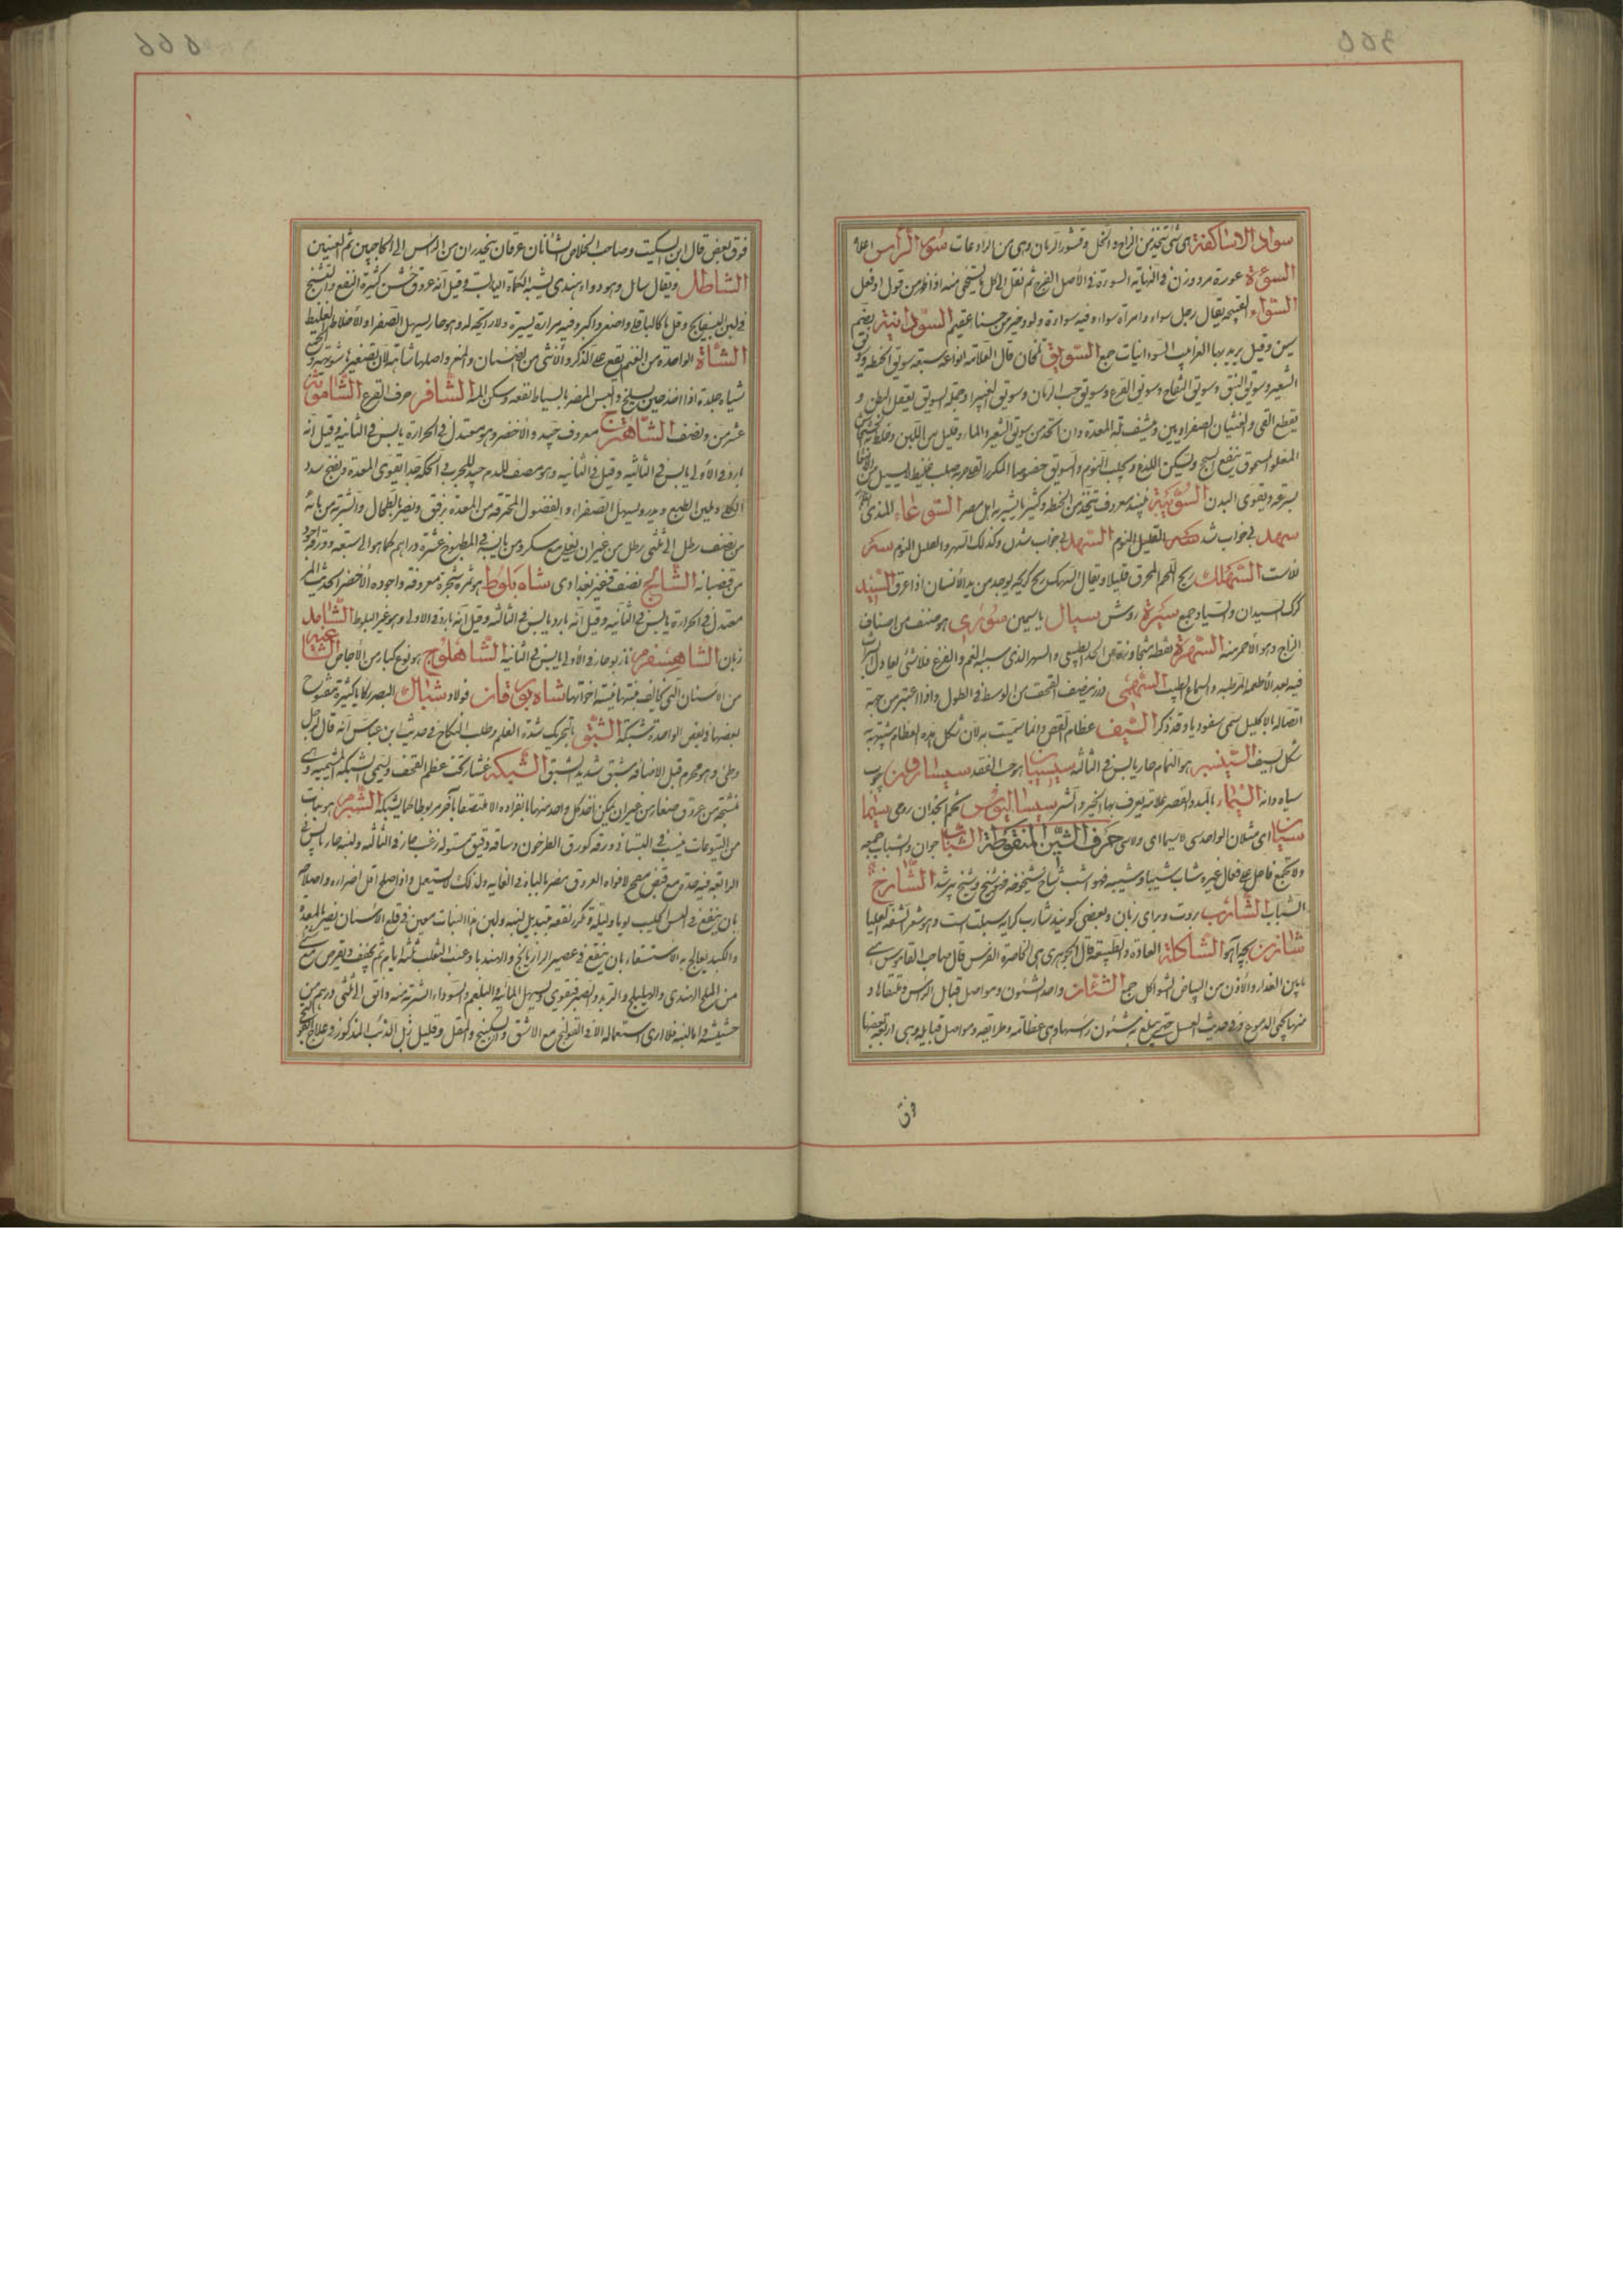 سواد الاساكفة هی شئ يتخذ من الزاج والخل وقشور الرمان وهی من الرادعات شوی الرأس اعلاه
السوءة عورة مرد وزن فی النهاية السوءة فی الأصل الفرج ثم نقل الی كل ما يستحی منه اذا ظهر من قول او فعل
السواء القبيحة يقال رجل سواء وامرأة سواء وفيه سواءة ولود خير من حسناء عقيم السودانية بضم
سين وقيل يريد بها الغرابيب السودانيات جمع السويق تلخان قال العلامة انواعه سبعة سويق الحنطة وسويق
الشعير وسويق النبق وسويق التفاح وسويق القرع وسويق حب الرمان وسويق الغبيرا وجملة السويق يعقل البطن و
يقطع القی والغثيان الصفراويين وينشف بلة المعدة وان اتخذ من سويق الشعير والماء وقليل من اللبن وخلط بخشخاش
المقلو المسحوق ينفع السحج ويسكن اللذع ويجلب النوم والسويق خصوصا المكرر
بسرعة ويقوی البدن السوبية نبيذ معروف يتخذ من الحنطة وكثيرا ما يشربه اهل مصر السوعاء المذی
سهد بی خواب شد القليل النوم السهد بی خواب شدن وكذلك السهر والقليل النوم
السهك ريح اللحم المحرق قليلا ويقال السهك ريح كريهة يوجد من بدن الأنسان اذا عرق السيد
گرگ السيدان والسياد جمع سيرة روش سيال ياسمين سوری هو صنف من اصناف
الزاج وهو الأحمر منه السهر يقظة متجاوزة عن الحد الطبيعی والسهر الذی سببه الغم والفزع فلا شئ يعادل
فيه بعد الأطعمة المرطبة والسماع الطيب السهمی درز ينصف القحف من الوسط فی الطول واذا اعتبر من جهة
اتصاله بالاكليل سمی سفوديا وقد ذكر السيف عظام القص وانما سميت به لان شكل هذه العظام شبيهة
شكل السيف السيسنبر هو النمام حار يابس فی الثالثة سيسبان هو حب الفقد
سياه دانه السيماء بالمد والقصر علامة يعرف بها الخير والشر سيساليوس تخم انجدان رومی سيما
سيان ای مثلان الواحد سی لاسيما ای ولا سی حرف الشين المنقوطة الشاب جوان والشباب جمعه
ولا يجمع فاعل علی فعال غيره
الشباب الشارب روت وبرای زنان وبعضی كويند شارب كرانه سبلت است وهو شعر الشفة العليا
شازن بچه آهو الشاكلة العادة والطبيعة قال الجوهری هی الخاصرة الفرس قال صاحب القاموس هی
ما بين العذار والأذن من البياض الشواكل جمع الشئان واحد الشئون ومواصل قبائل الرأس وملتقاها و
منها يجئ الدموع وفی حديث الغسل حتی يبلغ به شئون رأسها وهی عظامه وطرائقه ومواصل قبايله وهی اربعة بعضها
فوق
فوق بعض قال ابن السكيت وصاحب الخلاص الشأنان عرقان ينحدران من الرأس الی الحاجبين ثم العينين
الشاطل ويقال سابل وهو دواء هندی يشبه الكماة اليابسة وقيل انه عروق خشن كثيرة النفع والتشنج
فی لون البسفايج وقيل ما كالباقلا واصغر واكبر وفيه مرارة يسيرة ولا رائحة له وهو حار يسهل الصفراء والأخلاط الغليظ
الشاة الواحدة من الغنم يقع علی الذكر والأنثی من الضأن والمعز واصلها شاهة لان تصغيرها شويهة والجمع
شياه جلده اذا اخذ حين يسلخ والبس المضر بالسياط نفعه وسكن الم الشافر حرف القرع
عشر من ونصف الشاهترج معروف جيد والأخضر وهو معتدل فی الحرارة يابس فی الثانية وقيل انه
بارد فی الأولی يابس فی الثانية وقيل فی الثانية وهو مصف للدم جيد للجرب والحكة جدا يقوی المعدة ويفتح سدد
الكبد ويلين الطبع ويدر ويسهل الصفراء والفضول المحترقة من المعدة برفق ويضر بالطحال والشربة من مائه
من نصف رطل الی ثلثی رطل من غير ان يغلی مع سكر ومن يابسه فی المطبوخ عشرة دراهم كما هو الی سبعة وورقه اجود
من قضبانه نصف قفيز بغدادی شاه بلوط هو ثمرة شجرة معروفة واجوده الأخضر الحديث
معتدل فی الحرارة يابس فی الثانية وقيل انه بارد يابس فی الثالثة وقيل انه بارد فی الأولی وهو غير البلوط الشاهد
زبان الشاهسفرم نازبو حار فی الأولی يابس فی الثانية الشاهلوج هو نوع كبار من الأجاص الشاغية
من الاسنان التی تخالف نبتتها نبتة اخواتها شاه بورقان فولاد شباك البصر
بعضها فی بعض الواحدة شبكة الشبق بالتحريك شدة الغلمة وطلب النكاح فی حديث ابن عباس انه قال لرجل
وطئ وهو محرم قبل الافاضة شبق شديد الشبق الشبكة غشاء تحت عظم القحف ويسمی الشبكة المشيمية وهی
منتسجة من عروق صغار من غير ان يمكن اخذ كل واحد منها بانفراده الا ملتصقا بآخر مربوطا كما يشبكه الشبرم هو نبات
من اليتوعات ينبت فی البساتين ورقه كورق الطرخون وساقه دقيق مستوله زغب حار فی الثالثة ولبنه حار يابس فی
الرابعة فيه حدة مع قبض مفتح لافواه العروق مضر بالباه فی الغاية ولذلك لا يستعمل واذا اصلح اقل اضراره واصلاحه
بان ينقع فی اللبن الحليب يوما وليلة ويكرر نقعه بتبديل لبنه ولبن هذا النبات معين فی قلع الأسنان يضر المعدة
والكبد يعالج به الاستسقاء بان ينقع فی عصير الرازيانج والهندبا وعنب الثعلب ثلثة ايام ثم يجفف ويقرص مع شئ
من الملح الهندی والهليلج والتربد والصبر فيقوی ويسهل المائية والبلغم والسوداء الشربة منه دانق الی ثلثی درهم من
حشيشه واما لبنه فلا اری استعماله الا فی القولنج مع الاشق والسكبينج والمقل وقليل زبل الذئب المذكور فی علاج القولنج